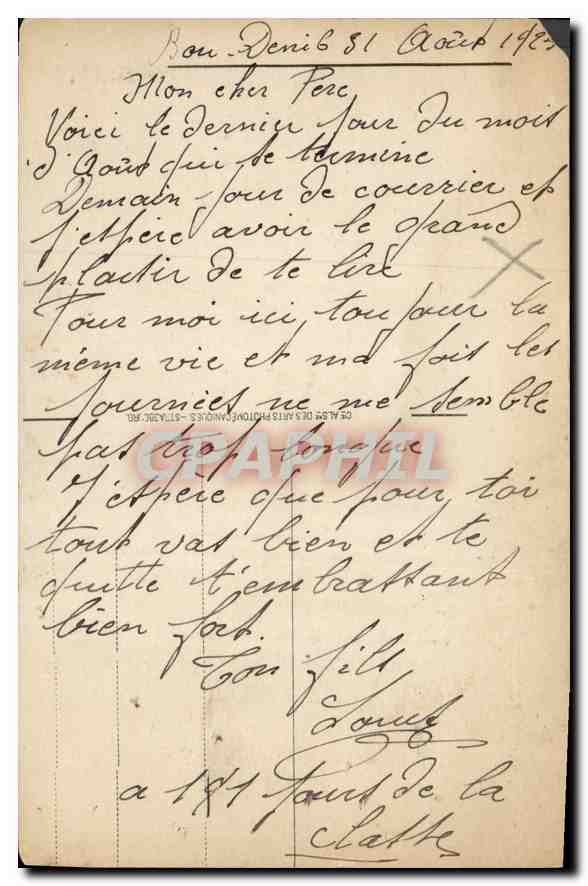 Bou-Denib 31 Août 192
Mon cher Père
Voici le dernier jour du mois
d'Août qui se termine
Demain jour de courrier et
j'espère avoir le grand
plaisir de te lire
Pour moi ici, toujour la
même vie et ma fois les
journées ne me semble
Cie ALSne DES ARTS PHOTOMÉCANIQUES - STRASBOURG
pas trop longue
CPAPHIL
J'espère que pour toi
tout vas bien et te
quitte t'embrassant
bien fort.
Ton fils
Louis
a 191 Jours de la
classe